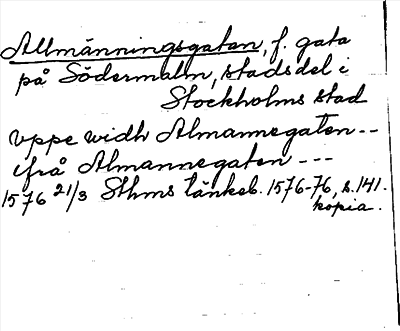 Allmänningsgatan, f. gata
på Södermalm, stadsdel i
Stockholms stad
Uppe widh Almannegaten --
ifrå Almannegaten ---
1576 21/3 Sthms tänkeb. 1576-76, s. 141.
kopia.